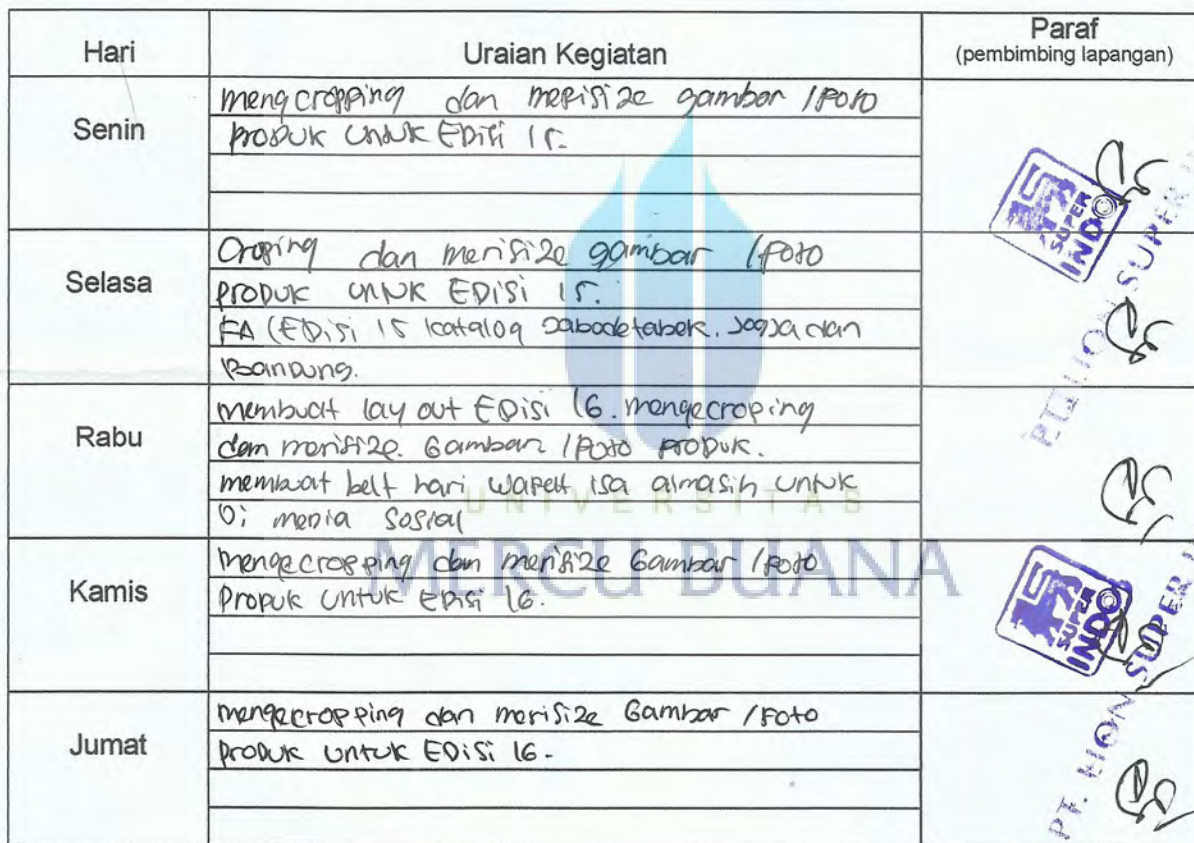 Hari
Uraian Kegiatan
Paraf
(pembimbing lapangan)
Senin
mengcropping dan merisize gambar / Foto
produk untuk EDisi 15.
Selasa
Croping dan merisize gambar / Foto
produk untuk EDiSi 15.
FA (EDisi 15 katalog Jabodetabek. Jogja dan
Bandung.
Rabu
membuat lay out EDisi 16. mengecroping
dan merisize. Gambar / Foto produk.
membuat belt hari wafett isa almasih untuk
Di media Sosial
Kamis
mengecropping dan merisize Gambar / Foto
Produk untuk EDisi 16.
Jumat
mengecropping dan merisize Gambar / Foto
produk untuk EDiSi 16.
UNIVERSITAS
MERCU BUANA
SUPER
INDO
PT. LION SUPER
SUPER
INDO
PT. LION SUPER